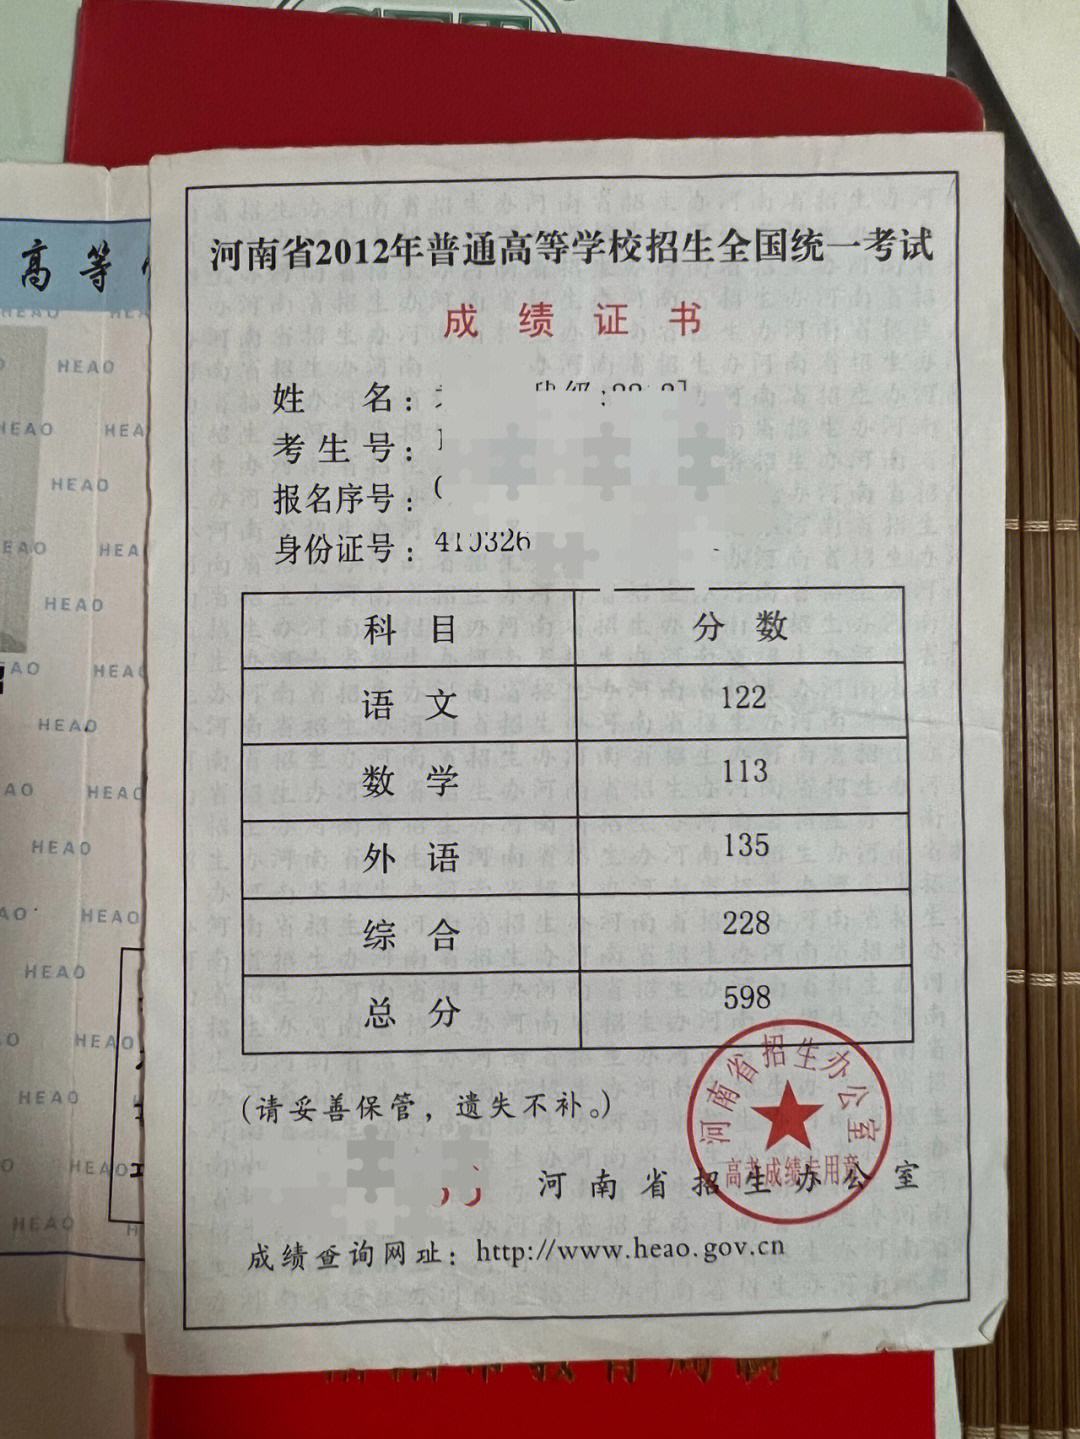 高等
HEAO
河南省2012年普通高等学校招生全国统一考试
成绩证书
姓名：
考生号：
报名序号：
身份证号：410326
科目 分数
语文 122
数学 113
外语 135
综合 228
总分 598
(请妥善保管，遗失不补。)
河南省招生办公室
河南省招生办公室
高考成绩专用章
成绩查询网址：http://www.heao.gov.cn